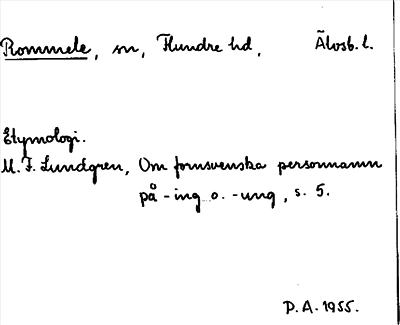 Rommele, sn, Flundre hd, Älvsb. l.
Etymologi.
M. F. Lundgren, Om fornsvenska personnamn
på -ing o. -ung, s. 5.
P. A. 1955.